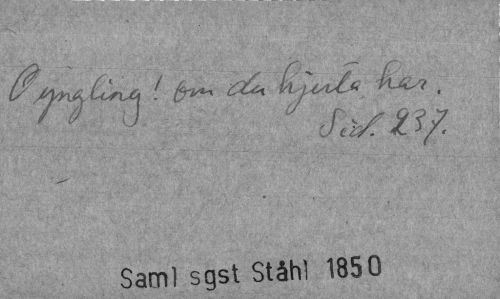 O yngling! om du hjerta har.
Sid. 237.
Saml sgst Ståhl 1850